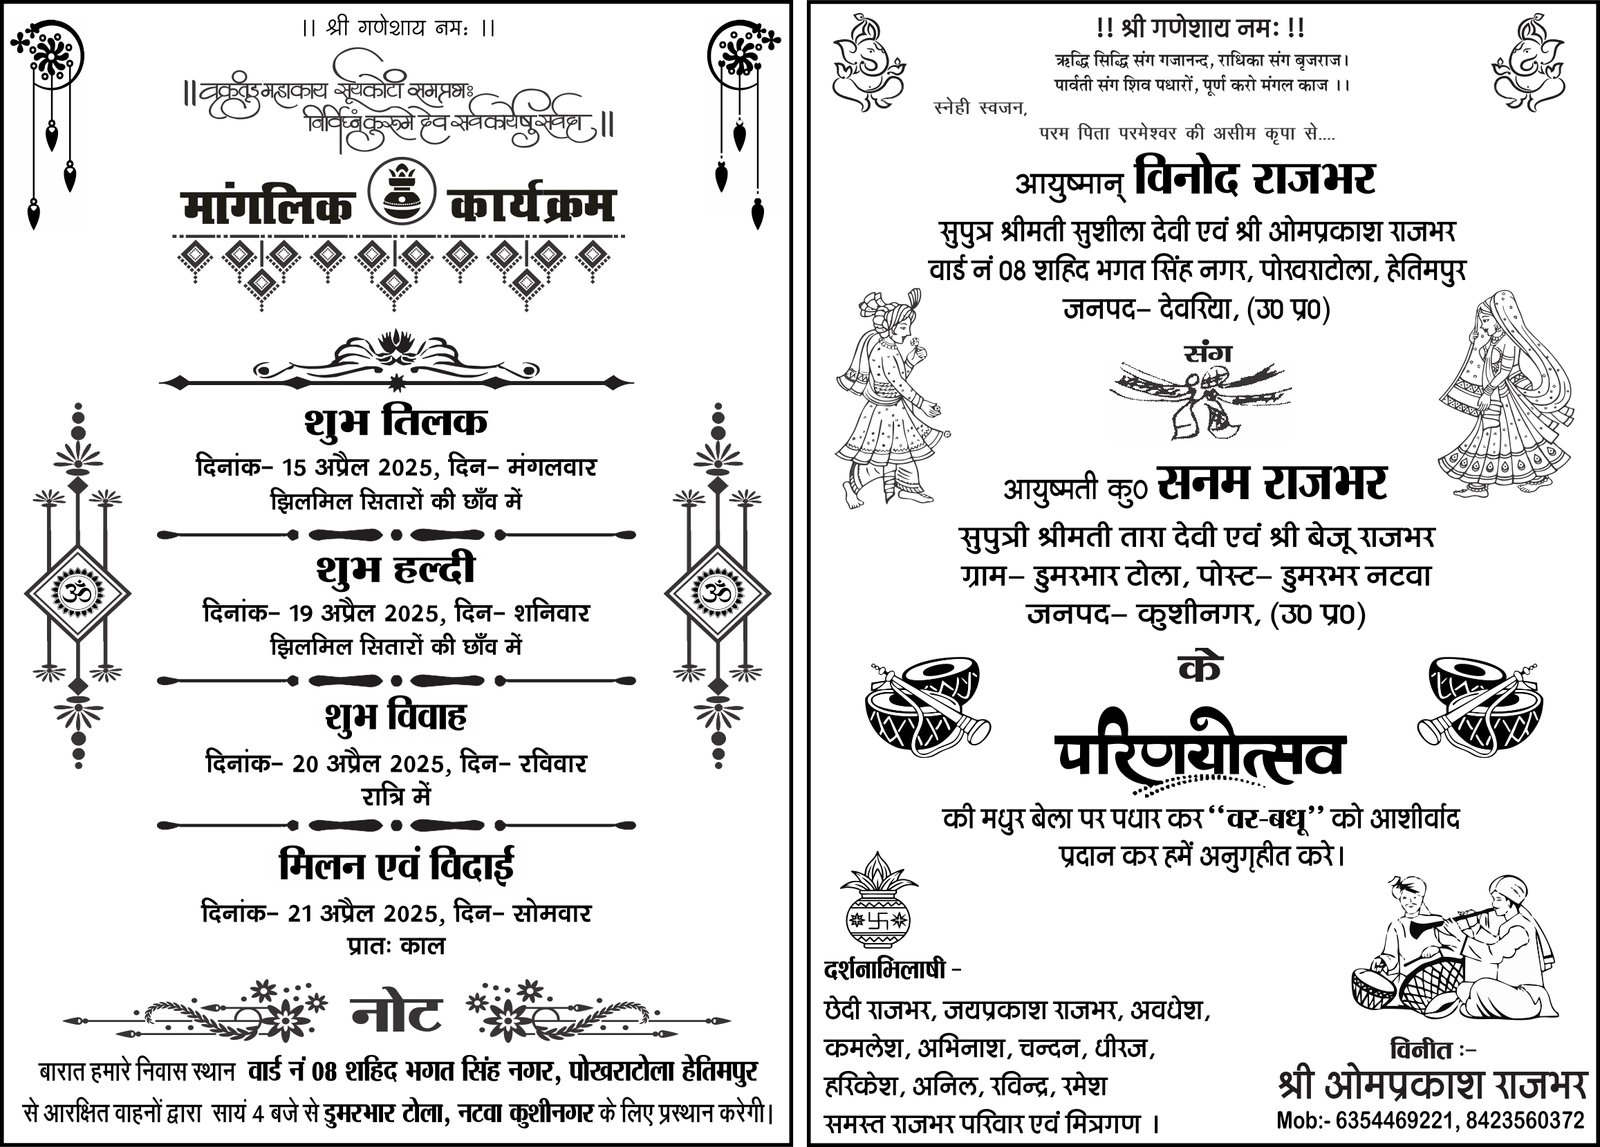 ।। श्री गणेशाय नमः ।।
।। वक्रतुंड महाकाय सूर्यकोटी समप्रभः
निर्विघ्नं कुरूमे देव सर्वकार्येषु सर्वदा ।।
मांगलिक कार्यक्रम
शुभ तिलक
दिनांक- 15 अप्रैल 2025, दिन- मंगलवार
झिलमिल सितारों की छाँव में
शुभ हल्दी
दिनांक- 19 अप्रैल 2025, दिन- शनिवार
झिलमिल सितारों की छाँव में
ॐ
ॐ
शुभ विवाह
दिनांक- 20 अप्रैल 2025, दिन- रविवार
रात्रि में
मिलन एवं विदाई
दिनांक- 21 अप्रैल 2025, दिन- सोमवार
प्रातः काल
नोट
बारात हमारे निवास स्थान वार्ड नं 08 शहिद भगत सिंह नगर, पोखराटोला हेतिमपुर
से आरक्षित वाहनों द्वारा सायं 4 बजे से डुमरभार टोला, नटवा कुशीनगर के लिए प्रस्थान करेगी।
!! श्री गणेशाय नमः !!
ऋद्धि सिद्धि संग गजानन्द, राधिका संग बृजराज।
पार्वती संग शिव पधारों, पूर्ण करो मंगल काज ।।
स्नेही स्वजन,
परम पिता परमेश्वर की असीम कृपा से....
आयुष्मान् विनोद राजभर
सुपुत्र श्रीमती सुशीला देवी एवं श्री ओमप्रकाश राजभर
वार्ड नं 08 शहिद भगत सिंह नगर, पोखराटोला, हेतिमपुर
जनपद- देवरिया, (उ0 प्र0)
संग
आयुष्मती कु0 सनम राजभर
सुपुत्री श्रीमती तारा देवी एवं श्री बेजू राजभर
ग्राम- डुमरभार टोला, पोस्ट- डुमरभर नटवा
जनपद- कुशीनगर, (उ0 प्र0)
के
परिणयोत्सव
की मधुर बेला पर पधार कर “वर-बधू” को आशीर्वाद
प्रदान कर हमें अनुगृहीत करे।
दर्शनाभिलाषी -
छेदी राजभर, जयप्रकाश राजभर, अवधेश,
कमलेश, अभिनाश, चन्दन, धीरज,
हरिकेश, अनिल, रविन्द्र, रमेश
समस्त राजभर परिवार एवं मित्रगण ।
विनीत :-
श्री ओमप्रकाश राजभर
Mob:- 6354469221, 8423560372